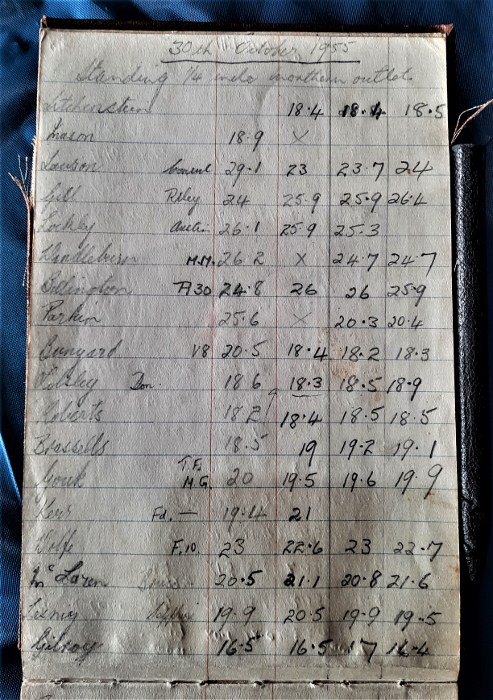 30th October 1955
Standing 1/4 mile outlets
Litchenstein 18.4 18.4 18.5
Mason 18.9 X
Lawson 29.1 23 23.7 24
Gill Riley 24 25.9 25.9 26.4
Lockley Austin 26.1 25.9 25.3
M.M. 26.2 X 24.7 24.7
A30 24.8 26 26 25.9
Parkin 25.6 X 20.3 20.4
Bunyard V8 20.5 18.4 18.2 18.3
Don. 18.6 18.3 18.5 18.9
Roberts 18.2 18.4 18.5 18.5
Brassells 18.5 19 19.2 19.1
T.F.
M.G. 20 19.5 19.6 19.9
Keys Fd. — 19.4 21
Wolfe F.10. 23 22.6 23 22.7
McLaren 20.5 21.1 20.8 21.6
19.9 20.5 19.9 19.5
Gilroy 16.5 16.5 17 16.4